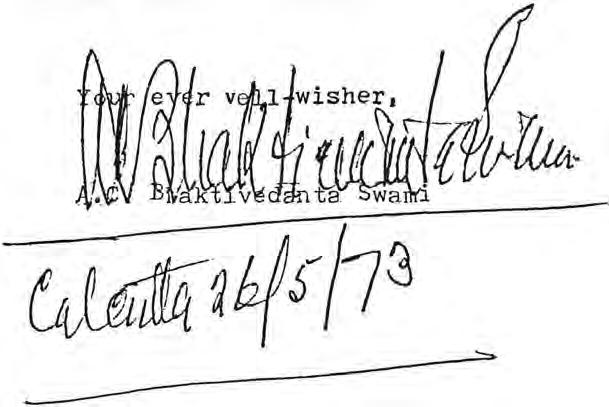 Your ever well-wisher,
A.C. Bhaktivedanta Swami
A.C. Bhaktivedanta Swami
Calcutta 26/5/73